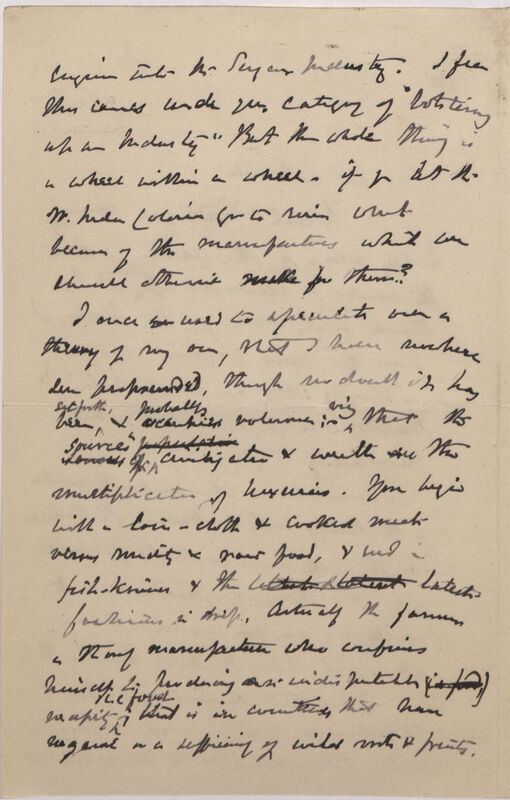 engine into the Sugar Industry. I fear
this comes under your category of "bolstering
up an Industry" But the whole thing is
a wheel within a wheel - if you let the
W. India Colonies go to ruin what
becomes of the manufactures which we
should otherwise make for them?
I once used to speculate over a
theory of my own, that I have nowhere
seen propounded, though no doubt it has
set forth, probably
been, & volumes; viz that the
sources
of civilization & wealth is the
multiplication of luxuries. You begin
with a loin-cloth & cooked meat
versus nudity & raw food, & end in
fish-knives & the latest
fashions in . Actually the farmer
is the only manufacturer who confines
himself to producing an indisputable
necessity i.e. food; that is in countries that have
no a sufficiency of wild roots & fruits.